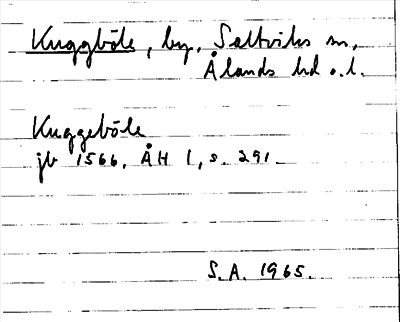 Kuggböle, by, Saltviks sn,
Ålands hd o.l.
Kuggeböle
jb 1566, ÅH 1, s. 291
S.A. 1965.